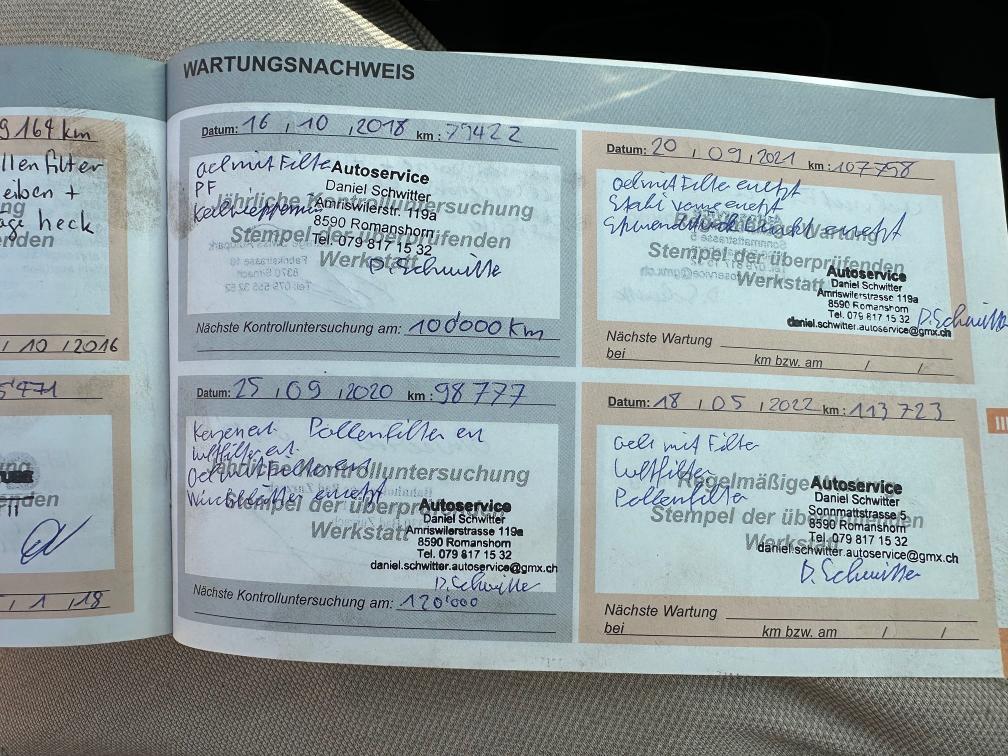 WARTUNGSNACHWEIS
9164 km
llen filter
eiben +
heck
nden
1 10 12016
5'471
enden
1 1 ,18
Datum: 16 , 10 , 2018 km: 79422
oel mit Filter
PF
Jährliche Kontrolluntersuchung
Stempel der überprüfenden
Werkstatt
Autoservice
Daniel Schwitter
Amriswilerstr. 119a
8590 Romanshorn
Tel. 079 817 15 32
D. Schwitter
Nächste Kontrolluntersuchung am: 100'000 Km
Datum: 25 , 09 , 2020 km: 98777
Pollenfilter
Jährliche Kontrolluntersuchung
Stempel der überprüfenden
Werkstatt
Autoservice
Daniel Schwitter
Amriswilerstrasse 119a
8590 Romanshorn
Tel. 079 817 15 32
daniel.schwitter.autoservice@gmx.ch
D. Schwitter
Nächste Kontrolluntersuchung am: 120'000
Datum: 20 , 09 , 2021 km: 107758
oel mit Filter
Wartung
Stempel der überprüfenden
Werkstatt
Autoservice
Daniel Schwitter
Amriswilerstrasse 119a
8590 Romanshorn
Tel. 079 817 15 32
daniel.schwitter.autoservice@gmx.ch
D. Schwitter
Nächste Wartung
bei km bzw. am / /
Datum: 18 , 05 , 2022 km: 113723
oel mit Filter
Luftfilter
Pollenfilter
Regelmäßige
Stempel der überprüfenden
Werkstatt
Autoservice
Daniel Schwitter
Sonnmattstrasse 5
8590 Romanshorn
Tel. 079 817 15 32
daniel.schwitter.autoservice@gmx.ch
D. Schwitter
Nächste Wartung
bei km bzw. am / /
III